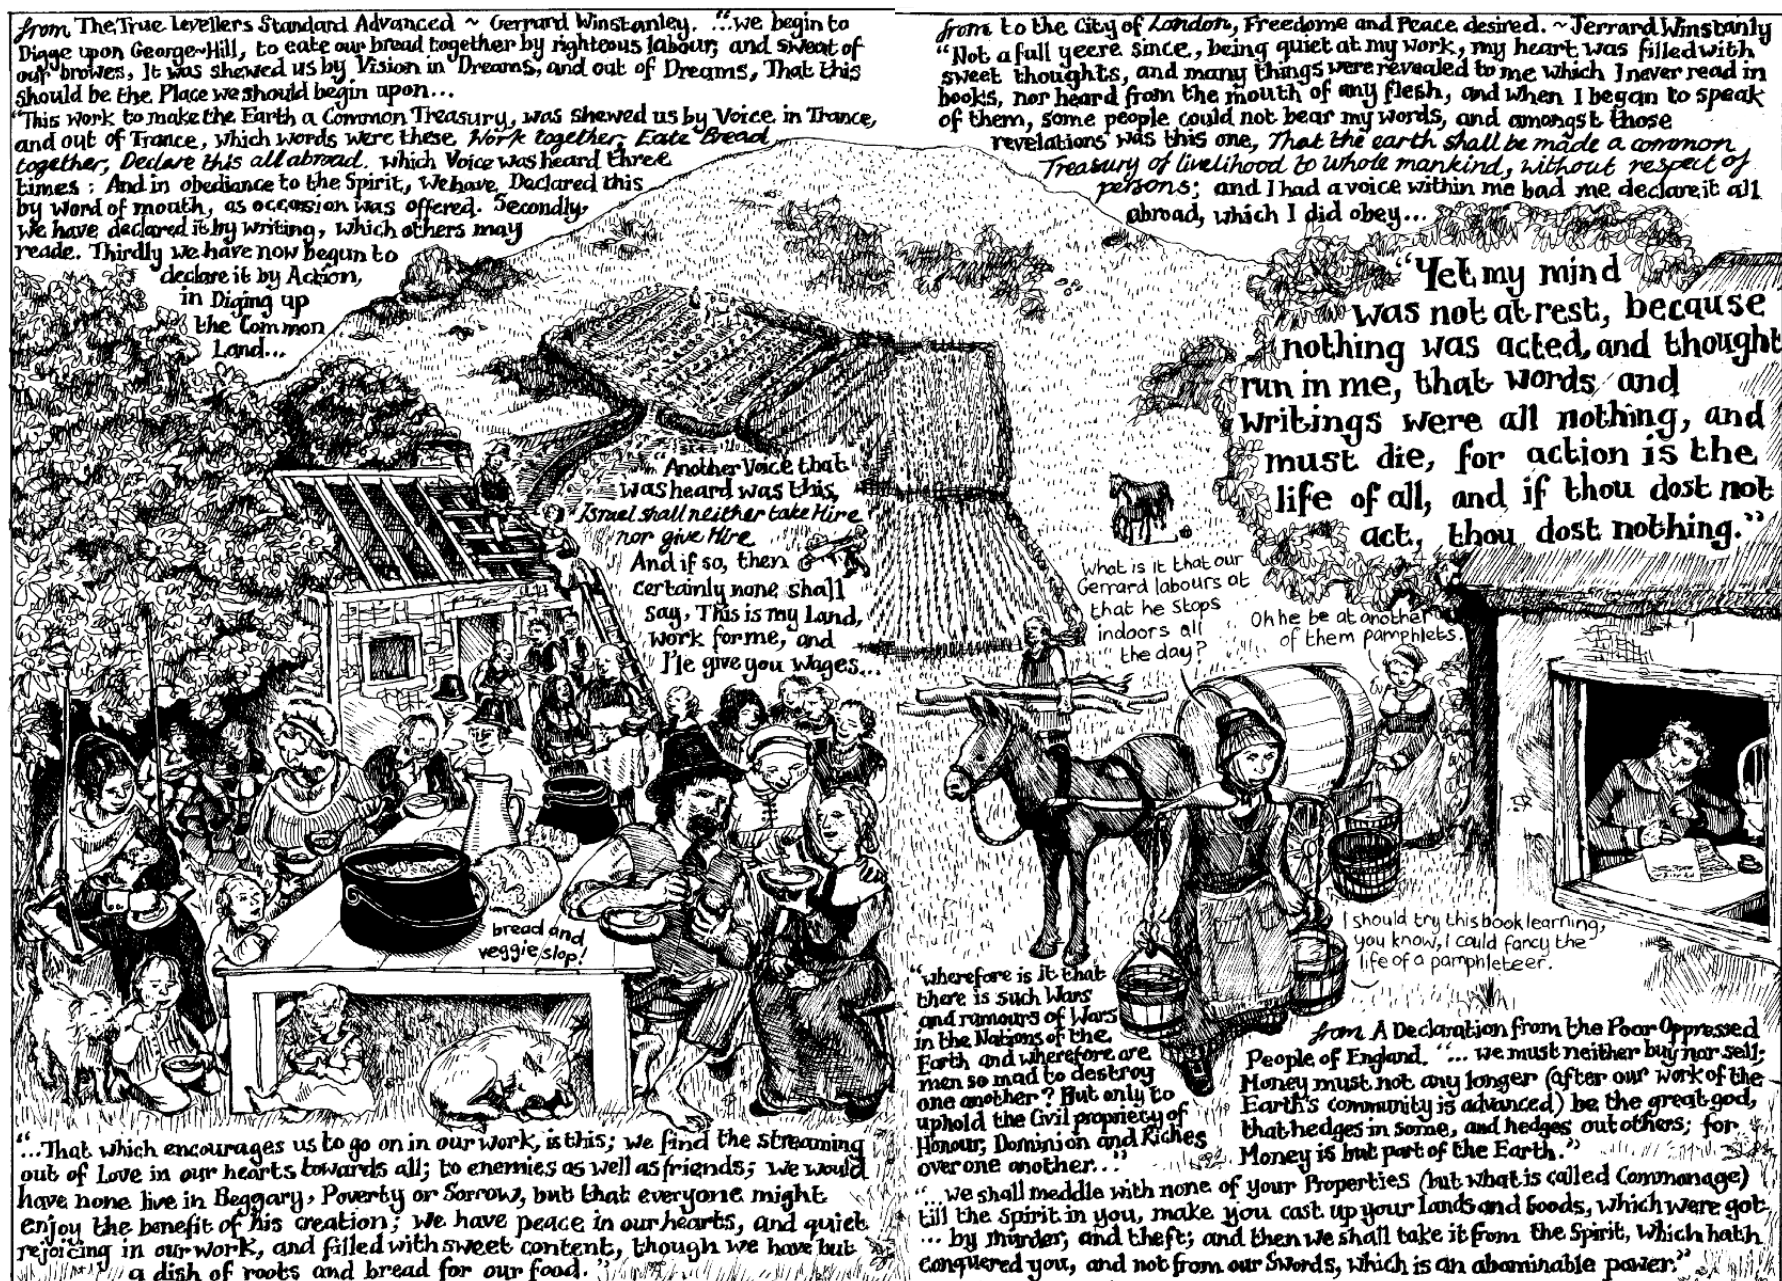 from The True Levellers Standard Advanced ~ Gerrard Winstanley. "..we begin to
Digge upon George~Hill, to eate our bread together by righteous labour, and sweat of
our browes, It was shewed us by Vision in Dreams, and out of Dreams, That this
should be the Place we should begin upon...
"This work to make the Earth a Common Treasury, was shewed us by Voice in Trance,
and out of Trance, which words were these Work together, Eate Bread
together, Declare this all abroad. which Voice was heard three
times : And in obediance to the Spirit, We have Declared this
by word of mouth, as occasion was offered. Secondly,
we have declared it by writing, which others may
reade. Thirdly we have now begun to
declare it by Action,
in Diging up
the Common
Land...
"Another Voice that
was heard was this,
Israel shall neither take Hire
nor give Hire
And if so, then
certainly none shall
say, This is my Land,
work for me, and
I'le give you Wages...
bread and
veggie slop!
"...That which encourages us to go on in our work, is this; we find the streaming
out of Love in our hearts towards all; to enemies as well as friends; we would
have none live in Beggary, Poverty or Sorrow, but that everyone might
enjoy the benefit of his creation; we have peace in our hearts, and quiet
rejoicing in our work, and filled with sweet content, though we have but
a dish of roots and bread for our food."
from to the City of London, Freedome and Peace desired. ~ Jerrard Winstanly
"Not a full yeere since, being quiet at my work, my heart was filled with
sweet thoughts, and many things were revealed to me which I never read in
books, nor heard from the mouth of any flesh, and when I began to speak
of them, some people could not bear my words, and amongst those
revelations was this one, That the earth shall be made a common
Treasury of livelihood to whole mankind, without respect of
persons; and I had a voice within me bad me declare it all
abroad, which I did obey...
"Yet my mind
was not at rest, because
nothing was acted, and thought
run in me, that words and
writings were all nothing, and
must die, for action is the
life of all, and if thou dost not
act, thou dost nothing."
What is it that our
Gerrard labours at
that he stops
indoors all
the day?
Oh he be at another
of them pamphlets.
I should try this book learning,
you know, I could fancy the
life of a pamphleteer.
"wherefore is it that
there is such Wars
and rumours of Wars
in the Nations of the
Earth and wherefore are
men so mad to destroy
one another? But only to
uphold the Civil propriety of
Honour, Dominion and Riches
over one another..."
from A Declaration from the Poor Oppressed
People of England. "... we must neither buy nor sell;
Money must not any longer (after our work of the
Earth's community is advanced) be the great god,
that hedges in some, and hedges out others; for
Money is but part of the Earth."
"...we shall meddle with none of your Properties (but what is called Commonage)
till the Spirit in you, make you cast up your Lands and Goods, which were got
... by murder, and theft; and then we shall take it from the Spirit, which hath
conquered you, and not from our Swords, which is an abominable power."